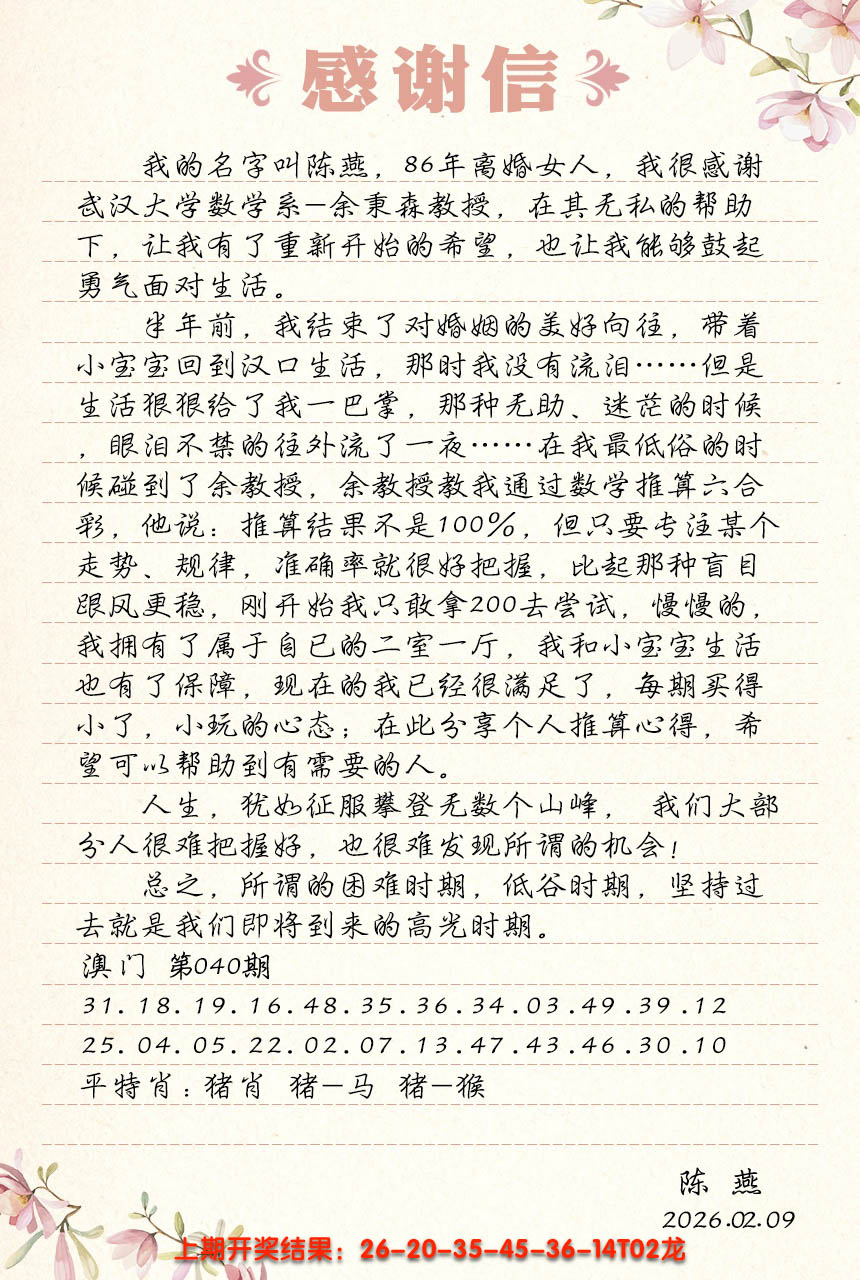 感谢信
我的名字叫陈燕，86年离婚女人，我很感谢
武汉大学数学系—余秉森教授，在其无私的帮助
下，让我有了重新开始的希望，也让我能够鼓起
勇气面对生活。
半年前，我结束了对婚姻的美好向往，带着
小宝宝回到汉口生活，那时我没有流泪……但是
生活狠狠给了我一巴掌，那种无助、迷茫的时候
，眼泪不禁的往外流了一夜……在我最低俗的时
候碰到了余教授，余教授教我通过数学推算六合
彩，他说：推算结果不是100%，但只要专注某个
走势、规律，准确率就很好把握，比起那种盲目
跟风更稳，刚开始我只敢拿200去尝试，慢慢的，
我拥有了属于自已的二室一厅，我和小宝宝生活
也有了保障，现在的我已经很满足了，每期买得
小了，小玩的心态；在此分享个人推算心得，希
望可以帮助到有需要的人。
人生，犹如征服攀登无数个山峰， 我们大部
分人很难把握好，也很难发现所谓的机会！
总之，所谓的困难时期，低谷时期，坚持过
去就是我们即将到来的高光时期。
澳门 第040期
31.18.19.16.48.35.36.34.03.49.39.12
25.04.05.22.02.07.13.47.43.46.30.10
平特肖：猪肖 猪—马 猪—猴
陈 燕
2026.02.09
上期开奖结果：26-20-35-45-36-14T02龙